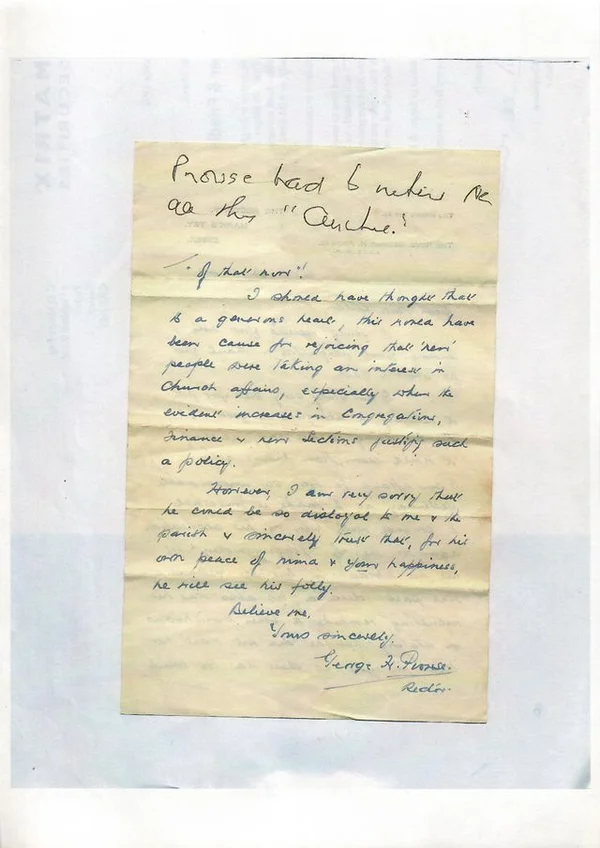 Prowse had to
"
"of that num"!
I should have thought that
to a generous heart, this would have
been cause for rejoicing that 'new'
people were taking an interest in
Church affairs, especially when the
evident increases in Congregations,
Finance & new Sections justify such
a policy.
However, I am very sorry that
he could be so disloyal to me & the
parish & sincerely trust that, for his
own peace of mind & your happiness,
he will see his folly.
Believe me,
Yours sincerely,
George H. Prowse.
Rector.
MATRIX
SECURITIES